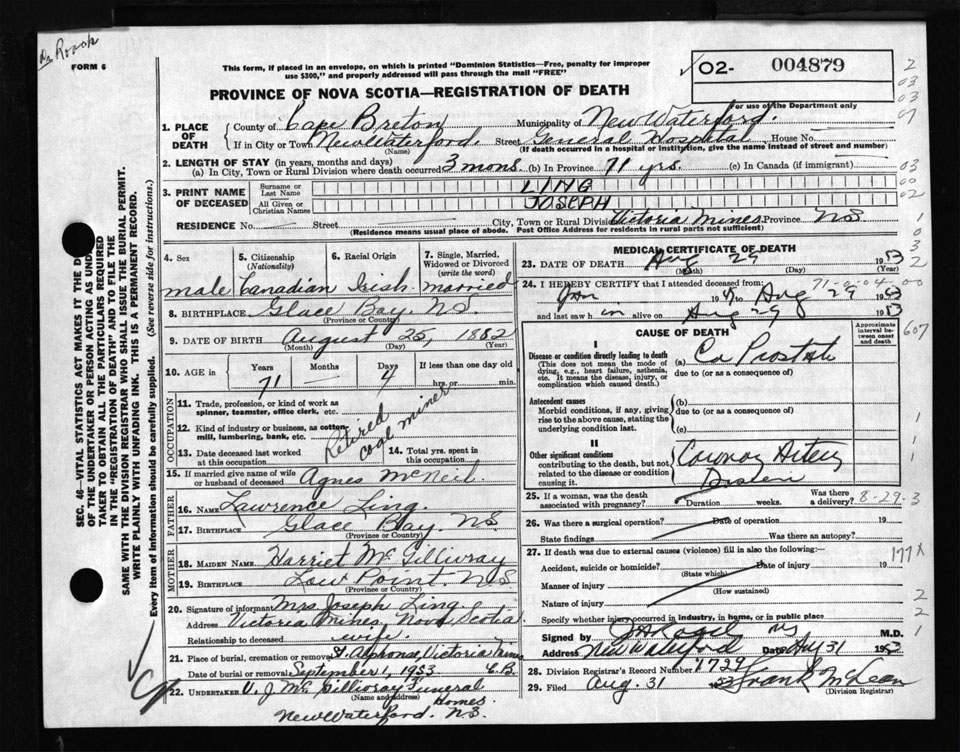 Dr Roach
FORM 6
This form, if placed in an envelope, on which is printed "Dominion Statistics—Free, penalty for improper
use $300," and properly addressed will pass through the mail "FREE"
02- 004879
For use of the Department only
PROVINCE OF NOVA SCOTIA—REGISTRATION OF DEATH
1. PLACE OF DEATH
County of Cape Breton Municipality of New Waterford.
If in City or Town New Waterford. Street General Hospital House No.
(Name) (If death occurred in a hospital or institution, give the name instead of street and number)
2. LENGTH OF STAY (in years, months and days)
(a) In City, Town or Rural Division where death occurred 3 mons. (b) in Province 71 yrs. (c) In Canada (if immigrant)
3. PRINT NAME OF DECEASED
Surname or Last Name LING
All Given or Christian Names JOSEPH
RESIDENCE No. Street City, Town or Rural Division Victoria Mines Province N.S
(Residence means usual place of abode. Post Office Address for residents in rural parts not sufficient)
4. Sex 5. Citizenship (Nationality) 6. Racial Origin 7. Single, Married, Widowed or Divorced (write the word)
male Canadian Irish married
8. BIRTHPLACE Glace Bay. N.S.
(Province or Country)
9. DATE OF BIRTH August 25, 1882
(Month) (Day) (Year)
10. AGE in Years Months Days If less than one day old
71 — 4 hrs. or min.
OCCUPATION
11. Trade, profession, or kind of work as spinner, teamster, office clerk, etc.
12. Kind of industry or business, as cotton-mill, lumbering, bank, etc.
Retired coal miner
13. Date deceased last worked at this occupation 14. Total yrs. spent in this occupation
15. If married give name of wife or husband of deceased Agnes McNeil
FATHER
16. Name Lawrence Ling.
17. BIRTHPLACE Glace Bay. N.S
(Province or Country)
MOTHER
18. MAIDEN NAME Harriet McGillivray
19. BIRTHPLACE Low Point. N.S
(Province or Country)
20. Signature of informant Mrs Joseph Ling
Address Victoria Mines, Nova Scotia
Relationship to deceased wife.
21. Place of burial, cremation or removal St. Alphonse, Victoria Mines
Date of burial or removal September 1, 1953 C.B.
22. UNDERTAKER V. J. McGillivray Funeral Homes.
(Name and address)
New Waterford. N.S.
MEDICAL CERTIFICATE OF DEATH
23. DATE OF DEATH Aug 29 1953
(Month) (Day) (Year)
24. I HEREBY CERTIFY that I attended deceased from: 71-0-04
Jan 19 to Aug 29 1953
and last saw h im alive on Aug 29 1953
CAUSE OF DEATH
Approximate interval between onset and death
I
Disease or condition directly leading to death
(This does not mean the mode of dying, e.g., heart failure, asthenia, etc. It means the disease, injury, or complication which caused death.)
(a) Ca Prostate
due to (or as a consequence of)
Antecedent causes
Morbid conditions, if any, giving rise to the above cause, stating the underlying condition last.
(b)
due to (or as a consequence of)
(c)
II
Other significant conditions
contributing to the death, but not related to the disease or condition causing it.
Coronary Artery
Disease
25. If a woman, was the death associated with pregnancy? Duration weeks. Was there a delivery? 8-29-3
26. Was there a surgical operation? Date of operation 19
State findings Was there an autopsy?
27. If death was due to external causes (violence) fill in also the following:-
Accident, suicide or homicide? Date of injury 19
(State which)
Manner of injury
(How sustained)
Nature of injury
Specify whether injury occurred in industry, in home, or in public place
Signed by M.D.
Address New Waterford Date Aug 31 1953
28. Division Registrar's Record Number 1729
29. Filed Aug. 31 53 Frank McLean
(Division Registrar)
SEC. 46—VITAL STATISTICS ACT MAKES IT THE D
OF THE UNDERTAKER OR PERSON ACTING AS UND
TAKER TO OBTAIN ALL THE PARTICULARS REQUIRED
IN THE "REGISTRATION OF DEATH" AND TO FILE THE
SAME WITH THE DIVISION REGISTRAR WHO SHALL ISSUE THE BURIAL PERMIT.
WRITE PLAINLY WITH UNFADING INK. THIS IS A PERMANENT RECORD.
Every item of information should be carefully supplied. (See reverse side for instructions.)
2
03
03
07
03
00
02
1
0
3
2
00
607
1
1
1
177X
2
2
1